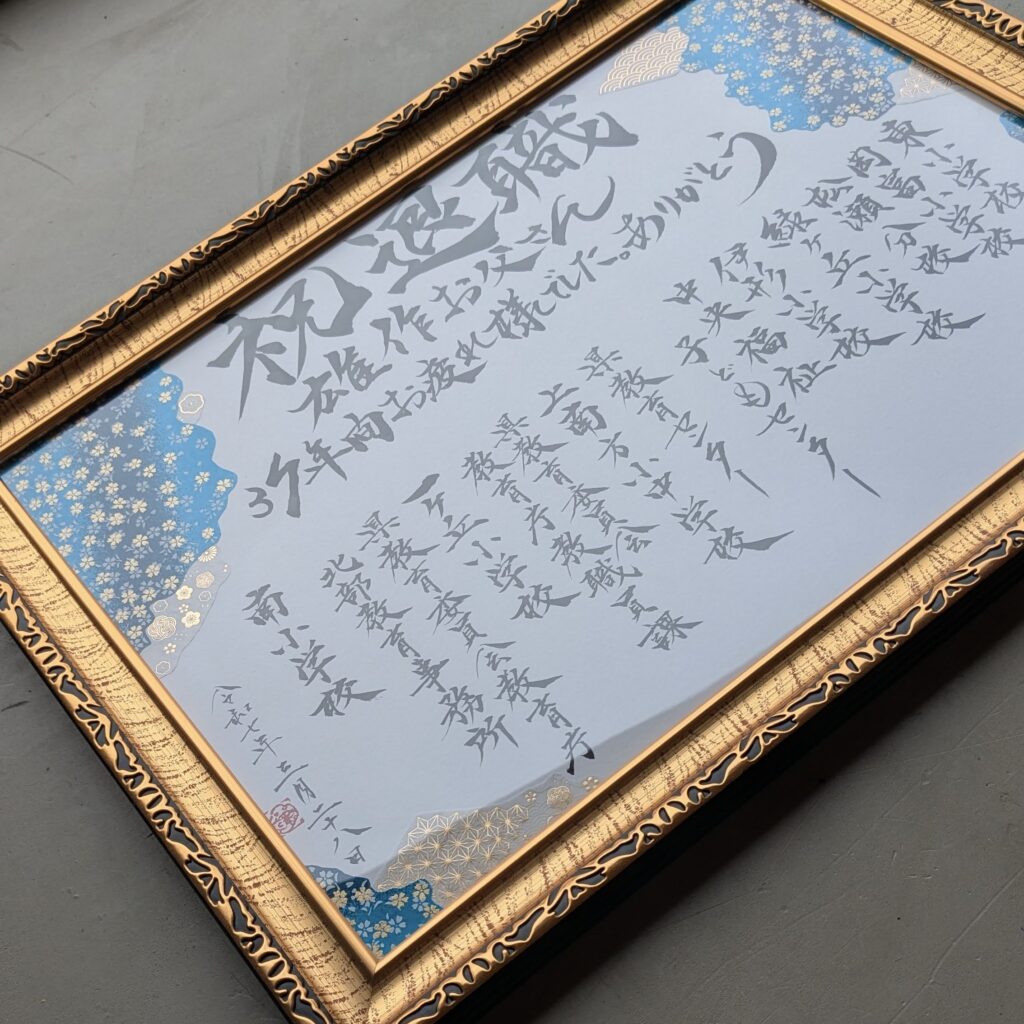 祝退職
雄作お父さん
37年間お疲れ様でした。ありがとう
東小学校
岡富小学校
緑ヶ丘小学校
伊形小学校
中央福祉
子どもセンター
県教育センター
上南方小中学校
県教育委員会
教育庁教職員課
一ヶ丘小学校
県教育委員会教育庁
北部教育事務所
南小学校
令和七年三月二十八日